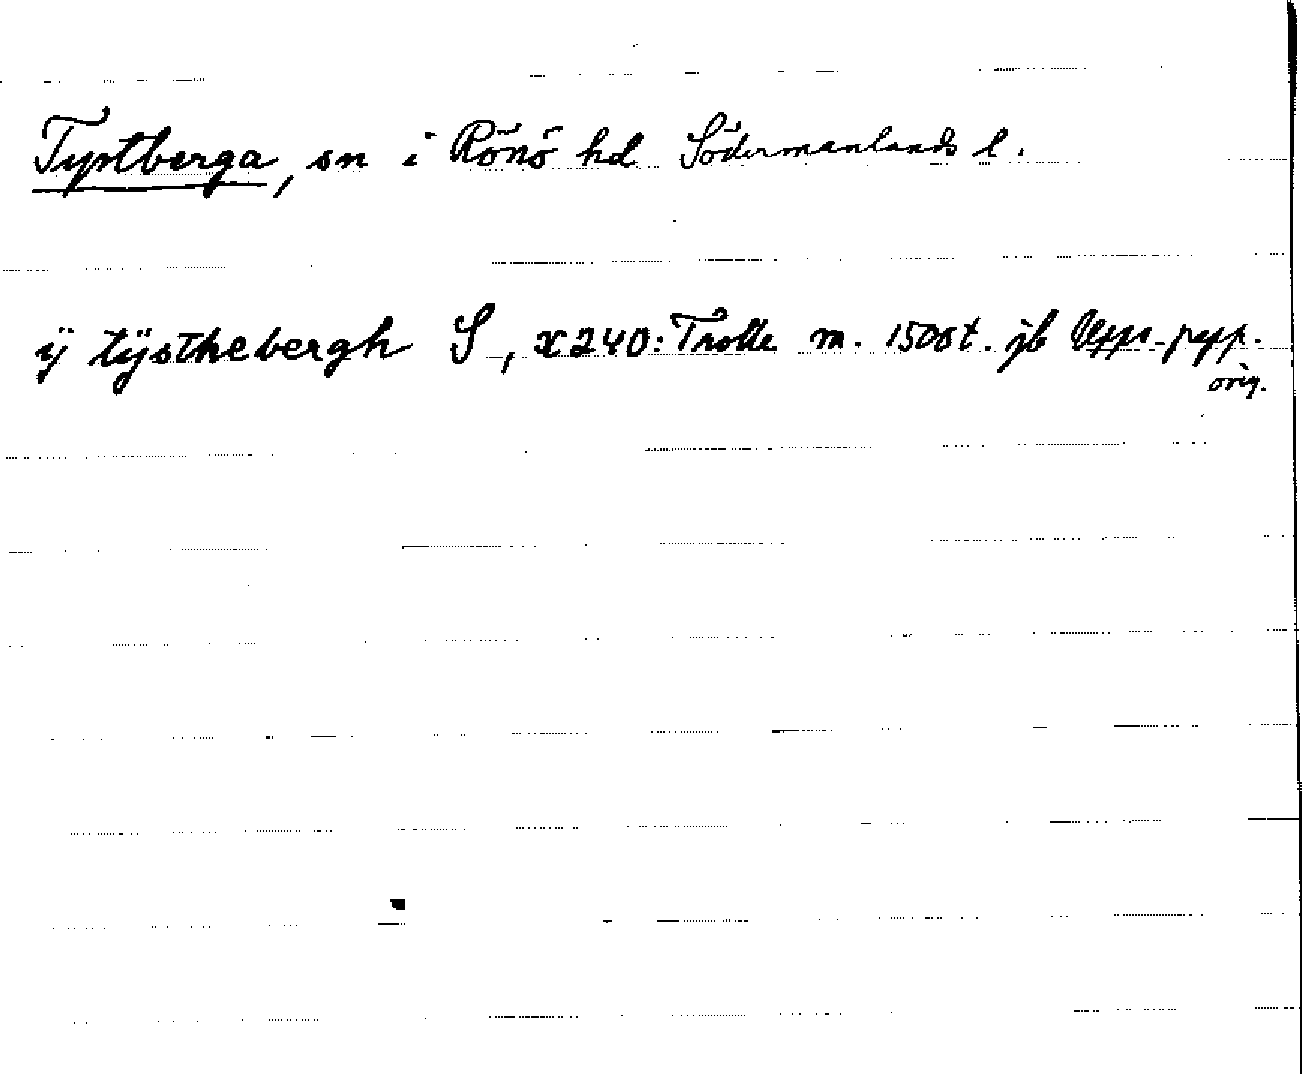 Tystberga, sn i Rönö hd Södermanlands l.
ÿ tÿsthebergh S, x240: Trolle m. 1500t. jb Upps. papp.
orig.